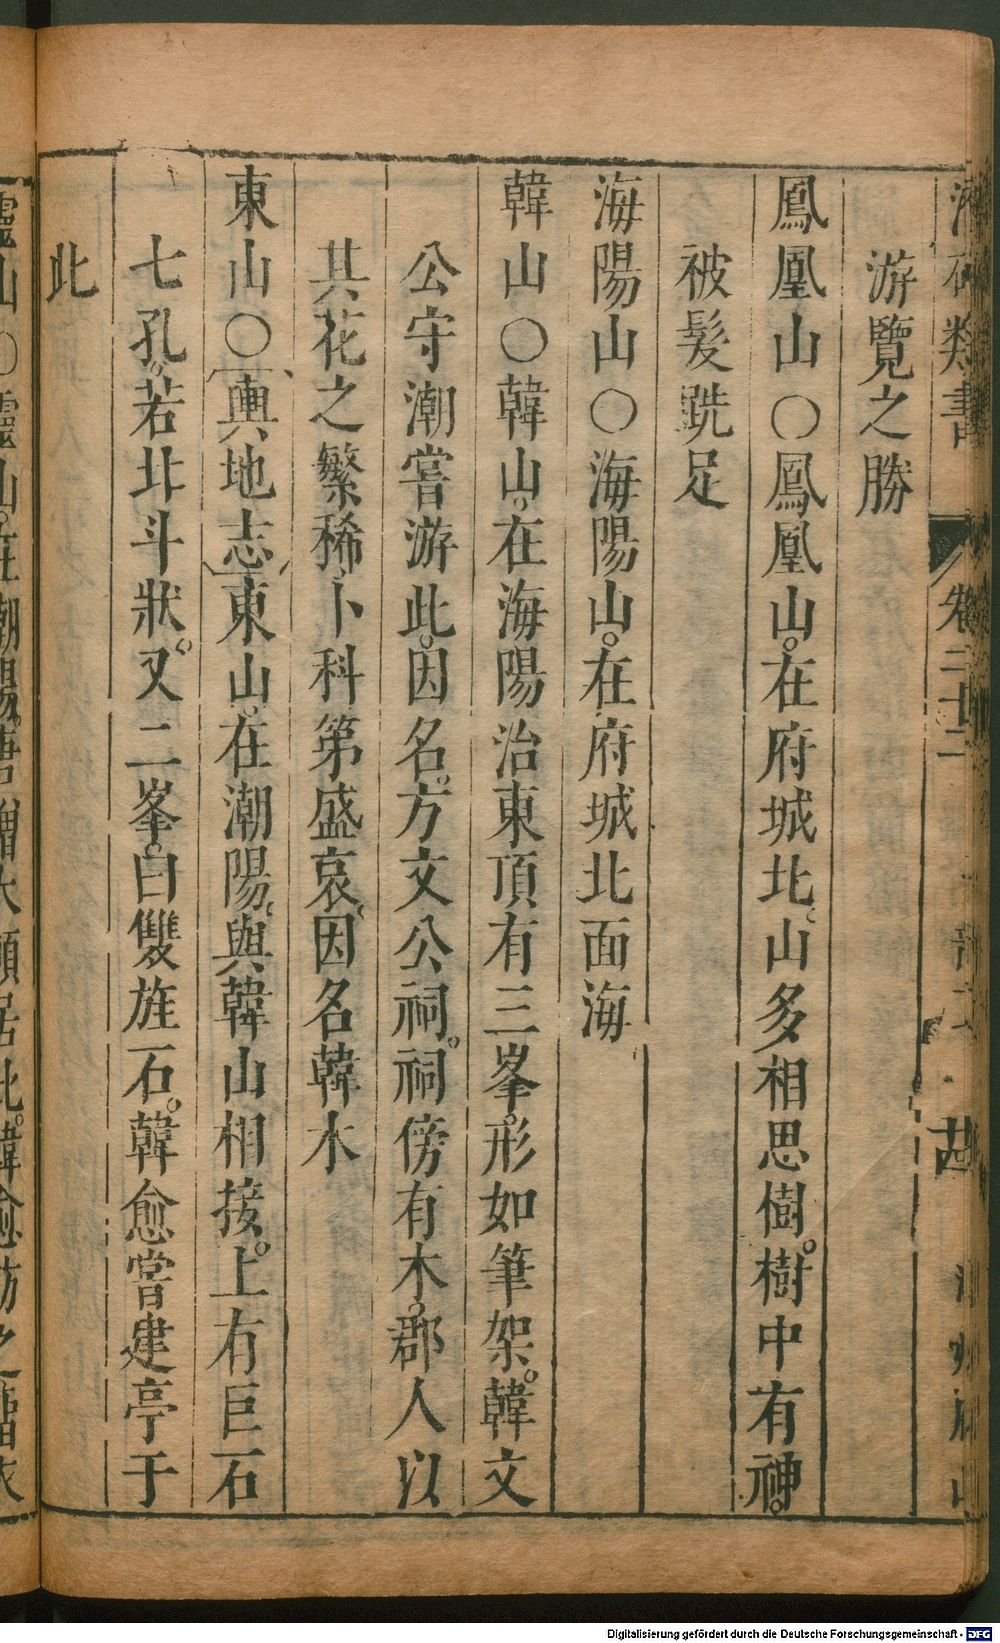 類書 卷二十二
游覽之勝
鳳凰山〇鳳凰山。在府城北。山多相思樹。樹中有神。
被髮跣足
海陽山〇海陽山。在府城北面海
韓山〇韓山。在海陽治東頂有三峯。形如筆架。韓文
公守潮嘗游此。因名。方文公祠。祠傍有木。郡人以
其花之繁稀、卜科第盛衰。因名韓木
東山〇輿地志東山。在潮陽。與韓山相接。上有巨石
七孔。若北斗狀。又二峯。曰雙旌石。韓愈嘗建亭于
此
Digitalisierung gefördert durch die Deutsche Forschungsgemeinschaft - DFG